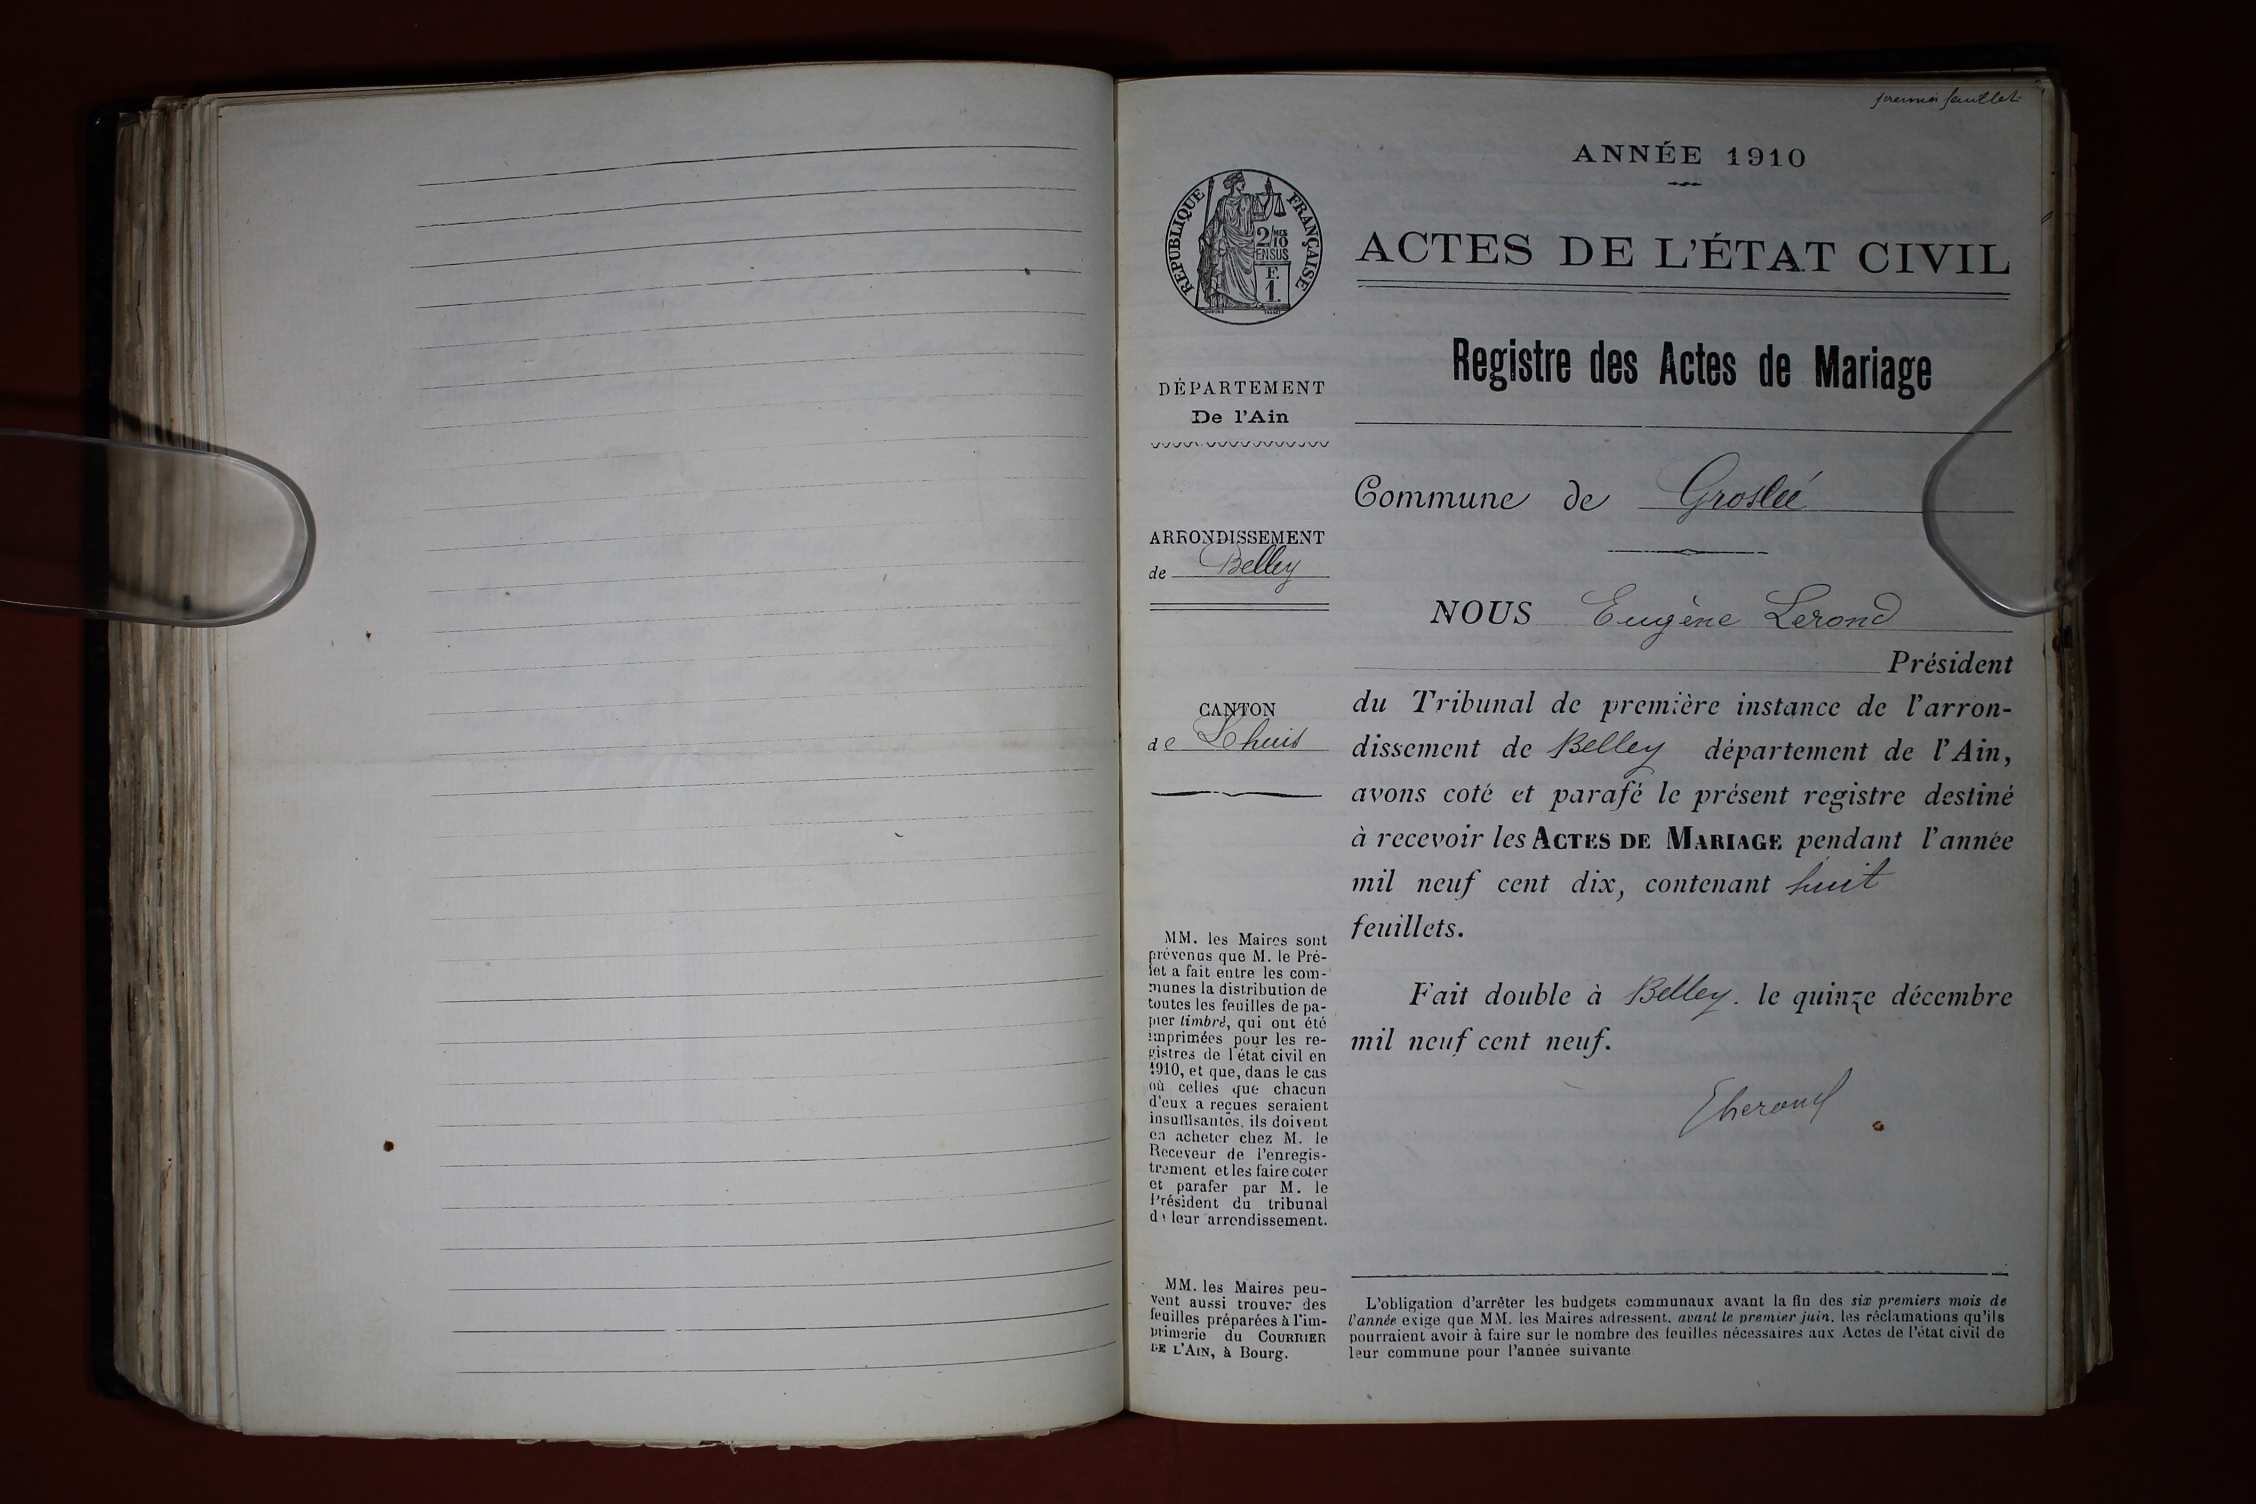 premier feuillet
ANNÉE 1910
RÉPUBLIQUE FRANÇAISE
2/10 MES
EN SUS
F.
1.
ACTES DE L'ÉTAT CIVIL
Registre des Actes de Mariage
DÉPARTEMENT
De l'Ain
ARRONDISSEMENT
de Belley
CANTON
de Lhuis
MM. les Maires sont
prévenus que M. le Pré-
fet a fait entre les com-
munes la distribution de
toutes les feuilles de pa-
pier timbré, qui ont été
imprimées pour les re-
gistres de l'état civil en
1910, et que, dans le cas
où celles que chacun
d'eux a reçues seraient
insuffisantes, ils doivent
en acheter chez M. le
Receveur de l'enregis-
trement et les faire coter
et parafer par M. le
Président du tribunal
de leur arrondissement.
MM. les Maires peu-
vent aussi trouver des
feuilles préparées à l'im-
primerie du COURRIER
DE L'AIN, à Bourg.
Commune de Groslée
NOUS Eugène Lerond
Président
du Tribunal de première instance de l'arron-
dissement de Belley département de l'Ain,
avons coté et parafé le présent registre destiné
à recevoir les ACTES DE MARIAGE pendant l'année
mil neuf cent dix, contenant huit
feuillets.
Fait double à Belley. le quinze décembre
mil neuf cent neuf.
L'obligation d'arrêter les budgets communaux avant la fin des six premiers mois de
l'année exige que MM. les Maires adressent, avant le premier juin, les réclamations qu'ils
pourraient avoir à faire sur le nombre des feuilles nécessaires aux Actes de l'état civil de
leur commune pour l'année suivante